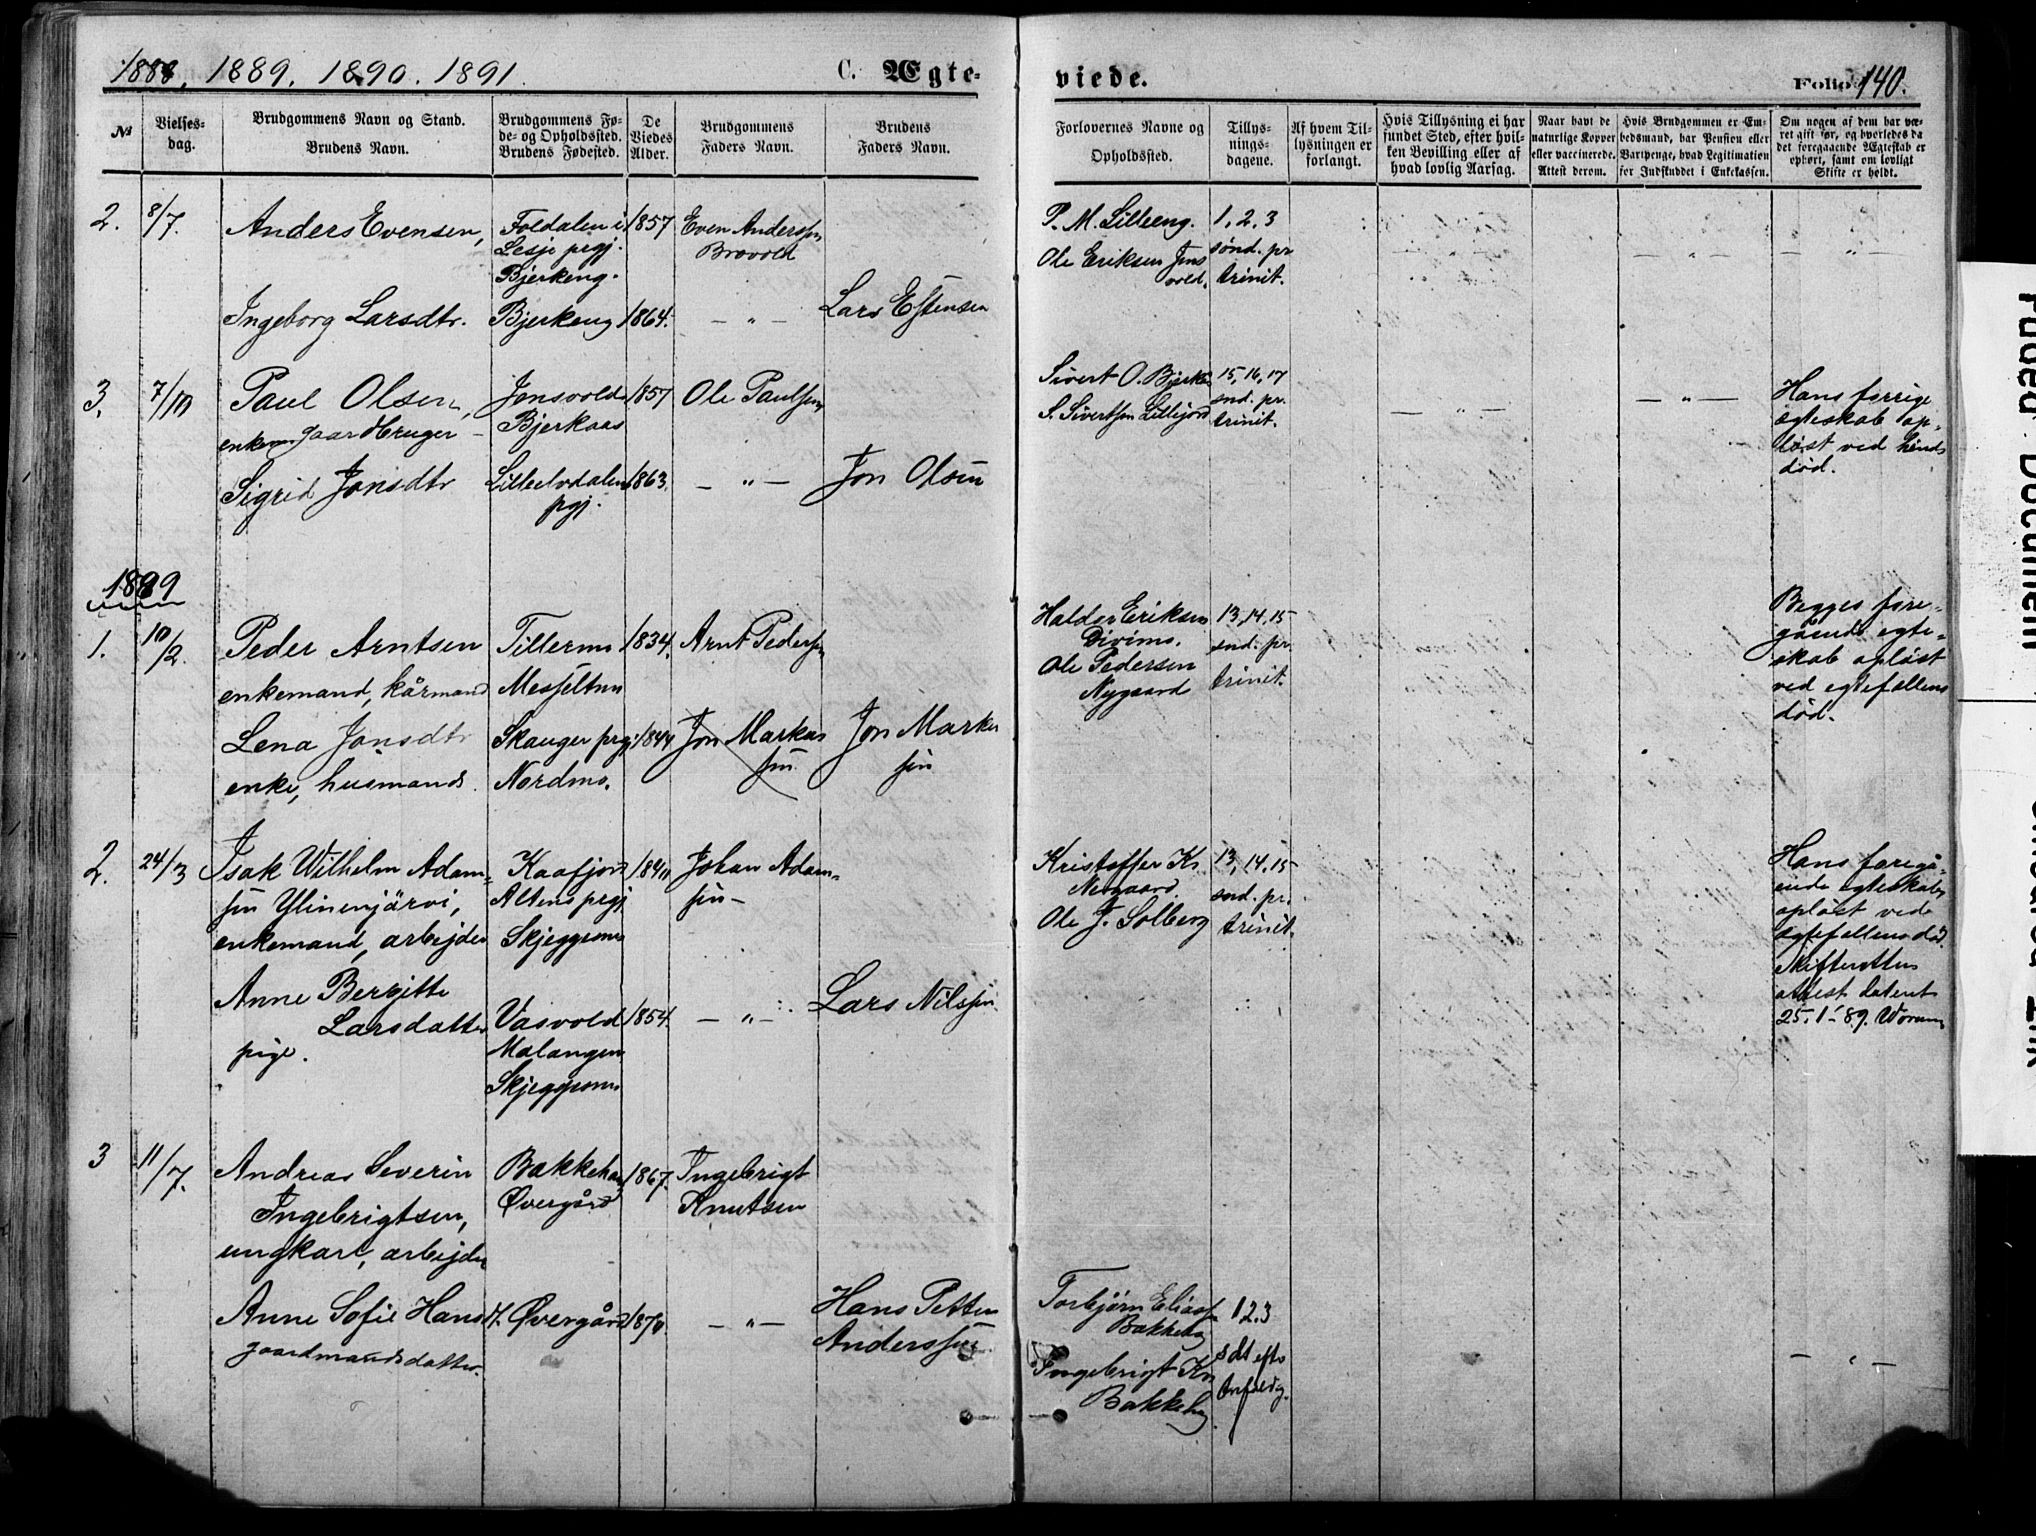 1888, 1889. 1890. 1891.
C. Ægte-
viede.
Folio 140.
№
Vielses-
dag.
Brudgommens Navn og Stand.
Brudens Navn.
Brudgommens Fø-
de- og Opholdssted.
Brudens Fødested.
De
Viedes
Alder.
Brudgommens
Faders Navn.
Brudens
Faders Navn.
Forlovernes Navne og
Opholdssted.
Tillys-
nings-
dagene.
Af hvem Til-
lysningen er
forlangt.
Hvis Tillysning ei har
fundet Sted, efter hvil-
ken Bevilling eller af
hvad lovlig Aarsag.
Naar havt de
naturlige Kopper
eller vaccinerede.
Attest derom.
Hvis Brudgommen er Em-
bedsmand, har Pension eller
Vartpenge, hvad Legitimation
for Indskuddet i Enkekassen.
Om nogen af dem har væ-
ret gift før, og hvorledes da
det foregaaende Ægteskab er
ophørt, samt om lovligt
Skifte er holdt.
2. 8/7. Anders Evensen,
Foldalen i
Lesje prgj.
Bjerkeng.
1857
Even Andersen
Brovold
P. M. Lilleeng.
Ole Eriksen Jons
vold.
1, 2, 3
sønd. pr
trinit.
Ingeborg Larsdtr. Bjerkeng 1864. — " — Lars Estensen
3. 7/10 Paul Olsen,
enkem gaardbruger
Jonsvold
Bjerkaas
1857
Ole Paulsen
Sivert O. Bjerk
S. Sivertsen Lillejord
15, 16, 17
snd. pr.
trinit.
— " —
— " —
Hans forrige
egteskab op-
løst ved hends
død.
Sigrid Jonsdtr
Lilleelvdalens
prgj.
1863. — " — Jon Olsen
1889
1. 10/2. Peder Arntsen
enkemand, kårmand
Tillermo
Messeltun
1834.
Arnt Peders
Haldor Eriksen
Divimo.
Ole Pedersen
Nygaard
13, 14, 15
snd. pr.
trinit.
Begges fore-
gående egte-
skab opløst
ved egtefællens
død.
Lena Jonsdtr
enke, husmands
Skauger prgj
Nordmo.
1844
Jon Markus
sen
Jon Markus
sen
2. 24/3 Isak Wilhelm Adam-
sen Ylinenjärvi,
enkemand, arbejder
Kaafjord
Altens prgj
Skjeggesnes
Johan Adam-
sen-
Kristoffer Kr.
Nergaard
Ole J. Solberg
13, 14, 15
snd. pr.
trinit.
Hans foregå-
ende egteskab
opløst ved
egtefællens død
Skifterettens
attest datert
25. 1-89.
Anne Bergitte
Larsdatter
pige.
Vasvold
Malangen
Skjeggesnes
1854. — " — Lars Nilssen
3 11/7. Andreas Severin
Ingebrigtsen,
ungkarl, arbejder
Bakkehaug
Øvergård
1867.
Ingebrigt
Knutsen
Anne Sofie Hansdt.
gaardmandsdatter.
Øvergård 1870 — " —
Hans Petter
Anderssen
Torbjørn Eliass
Bakkehg
Ingebrigt Kn
Bakkehg
1, 2, 3
— " —
Faded Document